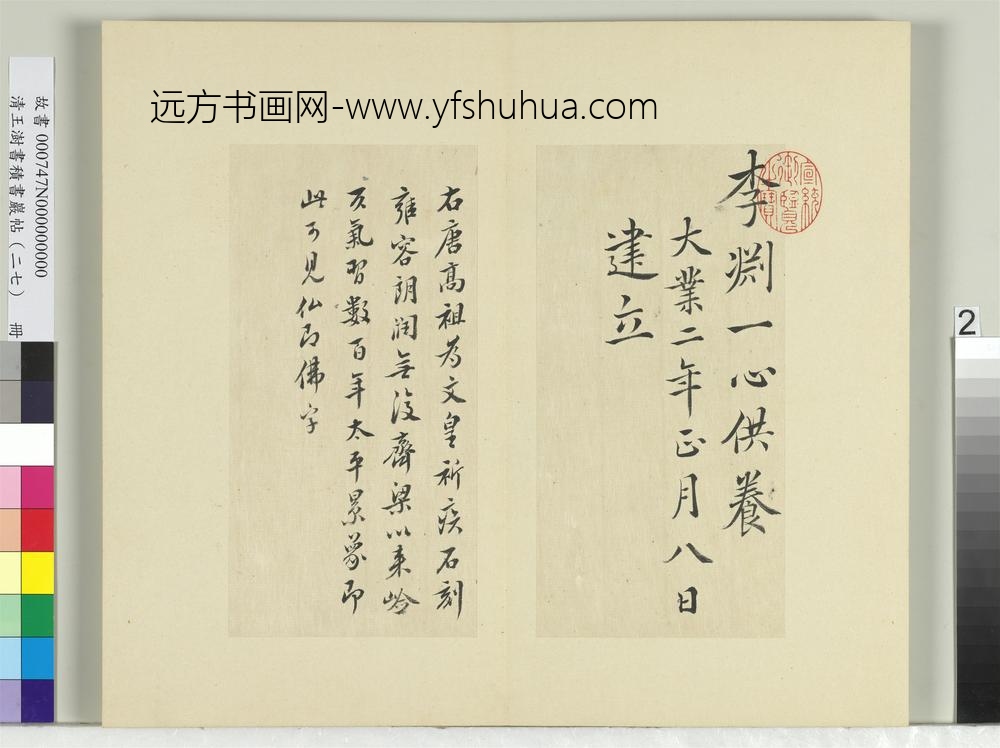 远方书画网-www.yfshuhua.com
李渊一心供養
大業二年正月八日
建立
右唐高祖为文皇祈疾石刻
雍容朗润無復齊梁以来
氣習數百年太平景象即
此可見仏即佛字
故書 000747N000000000
清王澍書積書巖帖（二七） 冊
2
宣統御覽之寶